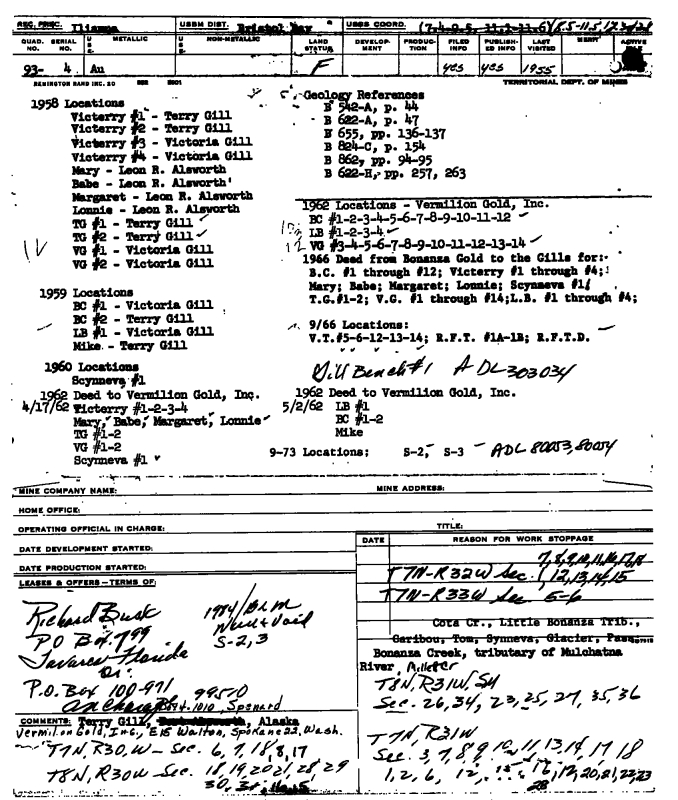 REC. PREC. Iliamna USBM DIST. Bristol Bay USGS COORD.
QUAD. NO. SERIAL NO. USE METALLIC USE NON-METALLIC LAND STATUS DEVELOPMENT PRODUCTION FILED INFO PUBLISHED INFO LAST VISITED MERIT ACTIVE FILE
93- 4 Au F yes yes 1955
REMINGTON RAND INC. TERRITORIAL DEPT. OF MINES
1958 Locations
Victerry #1 - Terry Gill
Victerry #2 - Terry Gill
Victerry #3 - Victoria Gill
Victerry #4 - Victoria Gill
Mary - Leon R. Alsworth
Babe - Leon R. Alsworth
Margaret - Leon R. Alsworth
Lonnie - Leon R. Alsworth
TG #1 - Terry Gill
TG #2 - Terry Gill
VG #1 - Victoria Gill
VG #2 - Victoria Gill
1959 Locations
BC #1 - Victoria Gill
BC #2 - Terry Gill
LB #1 - Victoria Gill
Mike - Terry Gill
1960 Locations
Scynneva #1
1962 Deed to Vermilion Gold, Inc.
4/17/62 Victerry #1-2-3-4
Mary, Babe, Margaret, Lonnie
TG #1-2
VG #1-2
Scynneva #1
Geology References
B 542-A, p. 44
B 622-A, p. 47
B 655, pp. 136-137
B 824-C, p. 154
B 862, pp. 94-95
B 622-H, pp. 257, 263
1962 Locations - Vermilion Gold, Inc.
BC #1-2-3-4-5-6-7-8-9-10-11-12
LB #1-2-3-4
12 VG #3-4-5-6-7-8-9-10-11-12-13-14
1966 Deed from Bonanza Gold to the Gills for:
B.C. #1 through #12; Victerry #1 through #4;
Mary; Babe; Margaret; Lonnie; Scynneva #1;
T.G.#1-2; V.G. #1 through #14;L.B. #1 through #4;
9/66 Locations:
V.T.#5-6-12-13-14; R.F.T. #1A-1B; R.F.T.D.
Gill Bench #1 ADL 303034
1962 Deed to Vermilion Gold, Inc.
5/2/62 LB #1
BC #1-2
Mike
9-73 Locations; S-2, S-3 ADL 80053,80054
MINE COMPANY NAME: MINE ADDRESS:
HOME OFFICE:
OPERATING OFFICIAL IN CHARGE: TITLE:
DATE DEVELOPMENT STARTED:
DATE PRODUCTION STARTED:
LEASES & OFFERS-TERMS OF:
Richard Busk
PO Box 799
Tavares Florida
Or
P.O. Box 100-971 99510
Anchorage
1010, Spenard
1984/BLM
Null + Void
S-2,3
DATE REASON FOR WORK STOPPAGE
7,8,9,10,11,16,17,18
T7N-R32W Sec. 12,13,14,15
T7N-R33W Sec 5-6
Cota Cr., Little Bonanza Trib.,
Caribou, Tom, Synneva, Glacier, Pass
Bonanza Creek, tributary of Mulchatna
River,
T8N, R31W, SM
Sec. 26,34, 23, 25, 27, 35, 36
T7N, R31W
Sec. 3, 7, 8, 9, 10, 11, 13, 14, 17, 18
1, 2, 6, 12, 20, 21, 22, 23
28
COMMENTS: Terry Gill, Alaska
Vermilon Gold, Inc., E15 Walton, Spokane 22, Wash.
T7N, R30, W - Sec. 6, 7, 18, 8, 17
T8N, R30W - Sec. 18, 19, 20, 21, 28, 29